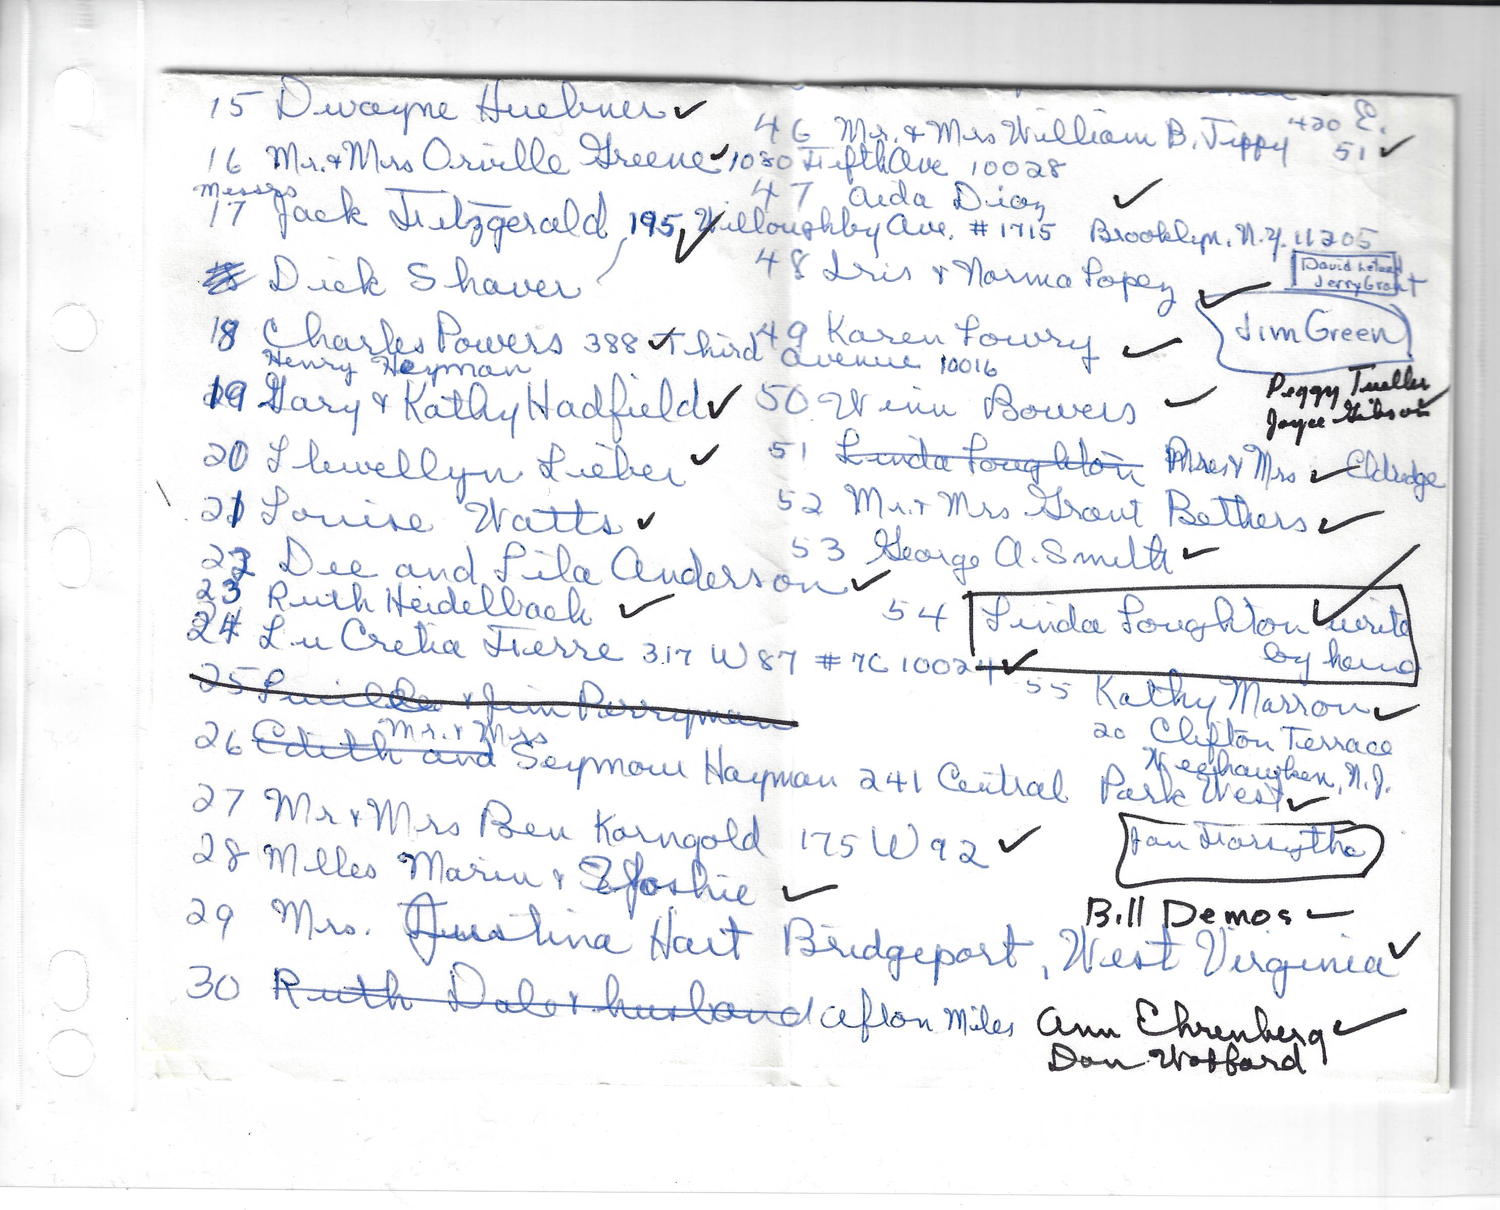 15 Dwayne Huebner ✓
16 Mr. & Mrs Orville Greene ✓ 1080 Fifth Ave 10028
Messrs
17 Jack Fitzgerald 195 Willoughby Ave. #1715 Brooklyn, N.Y. 11205
Dick Shaver
18 Charles Powers 388 Third Avenue 10016
Henry Heyman
19 Gary & Kathy Hadfield ✓
20 Llewellyn Lieber ✓
21 Louise Watts ✓
22 Dee and Lila Anderson ✓
23 Ruth Heidelback ✓
24 Lu Cretia Fierre 317 W 87 #7C 10024 ✓
25 Lucille & Jim Perryman
Mr. & Mrs
26 Edith and Seymour Hayman 241 Central Park West ✓
27 Mr & Mrs Ben Korngold 175 W 92 ✓
28 Milles Marin & Yoshie ✓
29 Mrs. Austina Hart Bridgeport, West Virginia ✓
30 Ruth Dale & husband Afton Miles
46 Mr. & Mrs William B. Tippy 420 E.
51 ✓
47 Aida Diaz ✓
48 Iris & Norma Lopez ✓
David
Jerry Grant
Jim Green
49 Karen Lowry ✓
Peggy Tueller
Joyce Gibson
50 Winn Bowers ✓
51 Linda Loughton Mr & Mrs ✓ Eldredge
52 Mr. & Mrs Grant Bethers ✓
53 George A. Smith ✓
54 Linda Loughton ✓ write
by hand
55 Kathy Marron ✓
20 Clifton Terrace
Weehauken, N.J.
Jan Forsythe
Bill Demos ✓
Ann Ehrenberg ✓
Dan Wofford